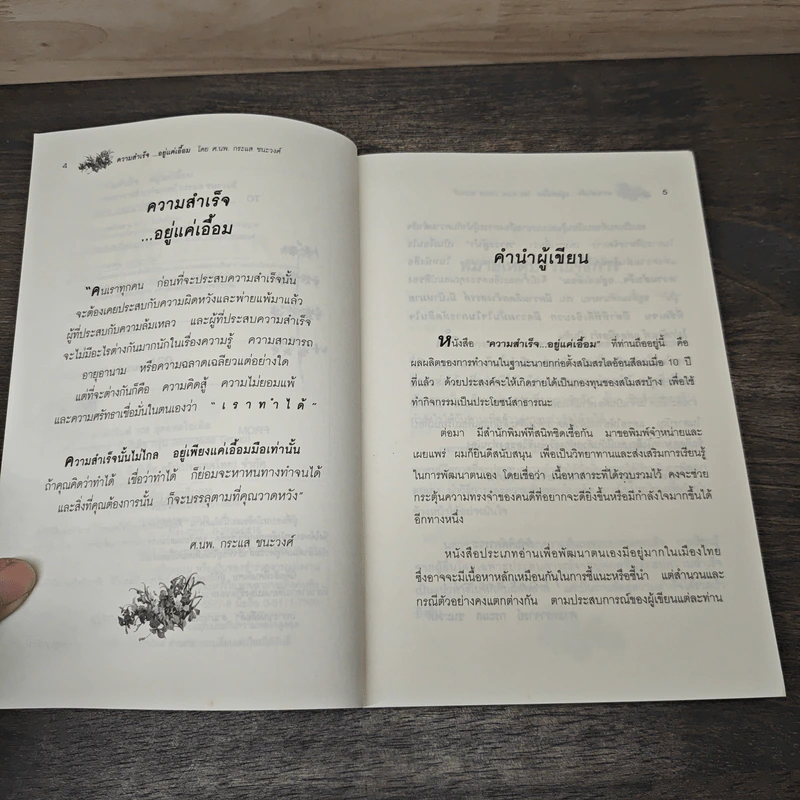 ๔ ความสำเร็จ ...อยู่แค่เอื้อม โดย ศ.นพ. กระแส ชนะวงศ์
ความสำเร็จ
...อยู่แค่เอื้อม
"คนเราทุกคน ก่อนที่จะประสบความสำเร็จนั้น
จะต้องเคยประสบกับความผิดหวังและพ่ายแพ้มาแล้ว
ผู้ที่ประสบกับความล้มเหลว และผู้ที่ประสบความสำเร็จ
จะไม่มีอะไรต่างกันมากนักในเรื่องความรู้ ความสามารถ
อายุอานาม หรือความฉลาดเฉลียวแต่อย่างใด
แต่ที่จะต่างกันก็คือ ความคิดสู้ ความไม่ยอมแพ้
และความศรัทธาเชื่อมั่นในตนเองว่า "เราทำได้"
ความสำเร็จนั้นไม่ไกล อยู่เพียงแค่เอื้อมมือเท่านั้น
ถ้าคุณคิดว่าทำได้ เชื่อว่าทำได้ ก็ย่อมจะหาหนทางทำจนได้
และสิ่งที่คุณต้องการนั้น ก็จะบรรลุตามที่คุณวาดหวัง"
ศ.นพ. กระแส ชนะวงศ์
5
คำนำผู้เขียน
หนังสือ "ความสำเร็จ...อยู่แค่เอื้อม" ที่ท่านถืออยู่นี้ คือ
ผลผลิตของการทำงานในฐานะนายกก่อตั้งสโมสรไลอ้อนสีลมเมื่อ 10 ปี
ที่แล้ว ด้วยประสงค์จะให้เกิดรายได้เป็นกองทุนของสโมสรบ้าง เพื่อใช้
ทำกิจกรรมเป็นประโยชน์สาธารณะ
ต่อมา มีสำนักพิมพ์ที่สนิทชิดเชื้อกัน มาขอพิมพ์จำหน่ายและ
เผยแพร่ ผมก็ยินดีสนับสนุน เพื่อเป็นวิทยาทานและส่งเสริมการเรียนรู้
ในการพัฒนาตนเอง โดยเชื่อว่า เนื้อหาสาระที่ได้รวบรวมไว้ คงจะช่วย
กระตุ้นความทรงจำของคนดีที่อยากจะดียิ่งขึ้นหรือมีกำลังใจมากขึ้นได้
อีกทางหนึ่ง
หนังสือประเภทอ่านเพื่อพัฒนาตนเองมีอยู่มากในเมืองไทย
ซึ่งอาจจะมีเนื้อหาหลักเหมือนกันในการชี้แนะหรือชี้นำ แต่สำนวนและ
กรณีตัวอย่างคงแตกต่างกัน ตามประสบการณ์ของผู้เขียนแต่ละท่าน